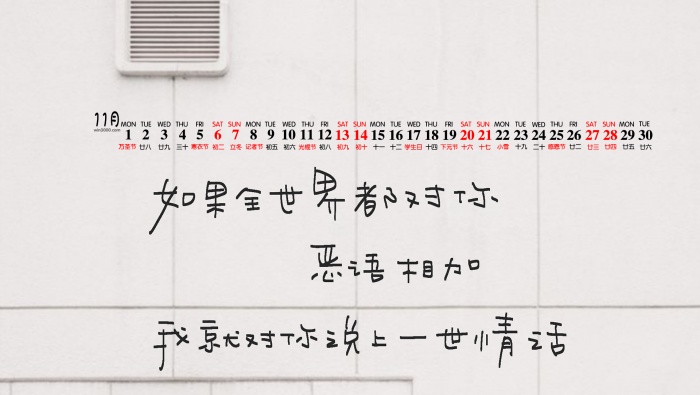 11月
win3000.com
MON TUE WED THU FRI SAT SUN MON TUE WED THU FRI SAT SUN MON TUE WED THU FRI SAT SUN MON TUE WED THU FRI SAT SUN MON TUE
1 2 3 4 5 6 7 8 9 10 11 12 13 14 15 16 17 18 19 20 21 22 23 24 25 26 27 28 29 30
万圣节 廿八 廿九 三十 寒衣节 初二 立冬 记者节 初五 初六 光棍节 初八 初九 初十 十一 十二 学生日 十四 下元节 十六 十七 小雪 十九 二十 感恩节 廿二 廿三 廿四 廿五 廿六
如果全世界都对你
恶语相加
我就对你说上一世情话